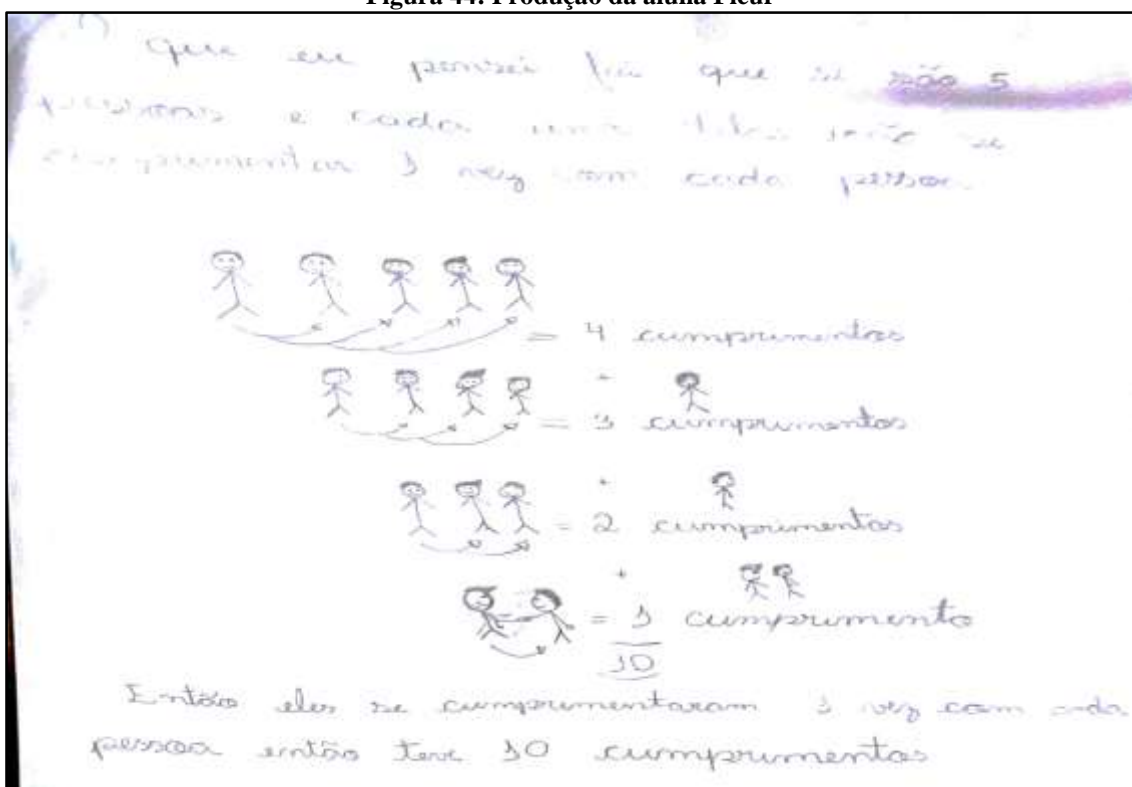 Figura 44: Produção da aluna Ficdr
que eu pensei foi que se são 5
pessoas e cada uma delas irão se
cumprimentar 1 vez com cada pessoa
= 4 cumprimentos
+
= 3 cumprimentos
+
= 2 cumprimentos
+
= 1 cumprimento
10
Então eles se cumprimentaram 1 vez com cada
pessoa então teve 10 cumprimentos